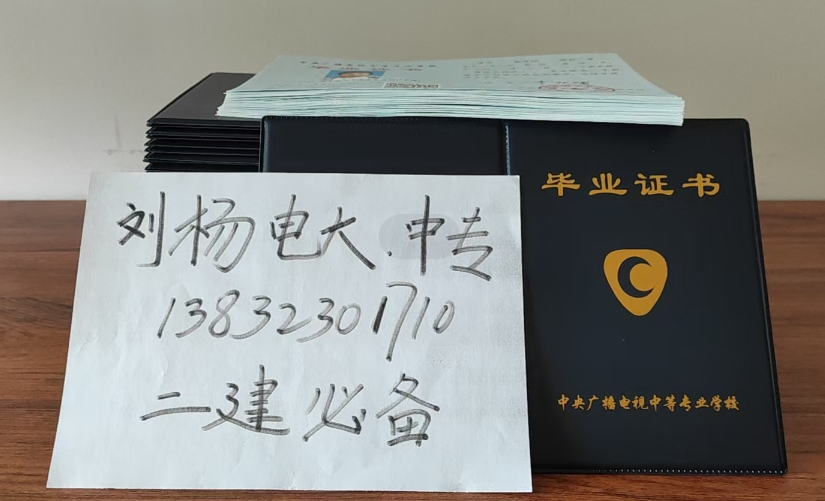 刘杨电大.中专
13832301710
二建必备
毕业证书
中央广播电视中等专业学校